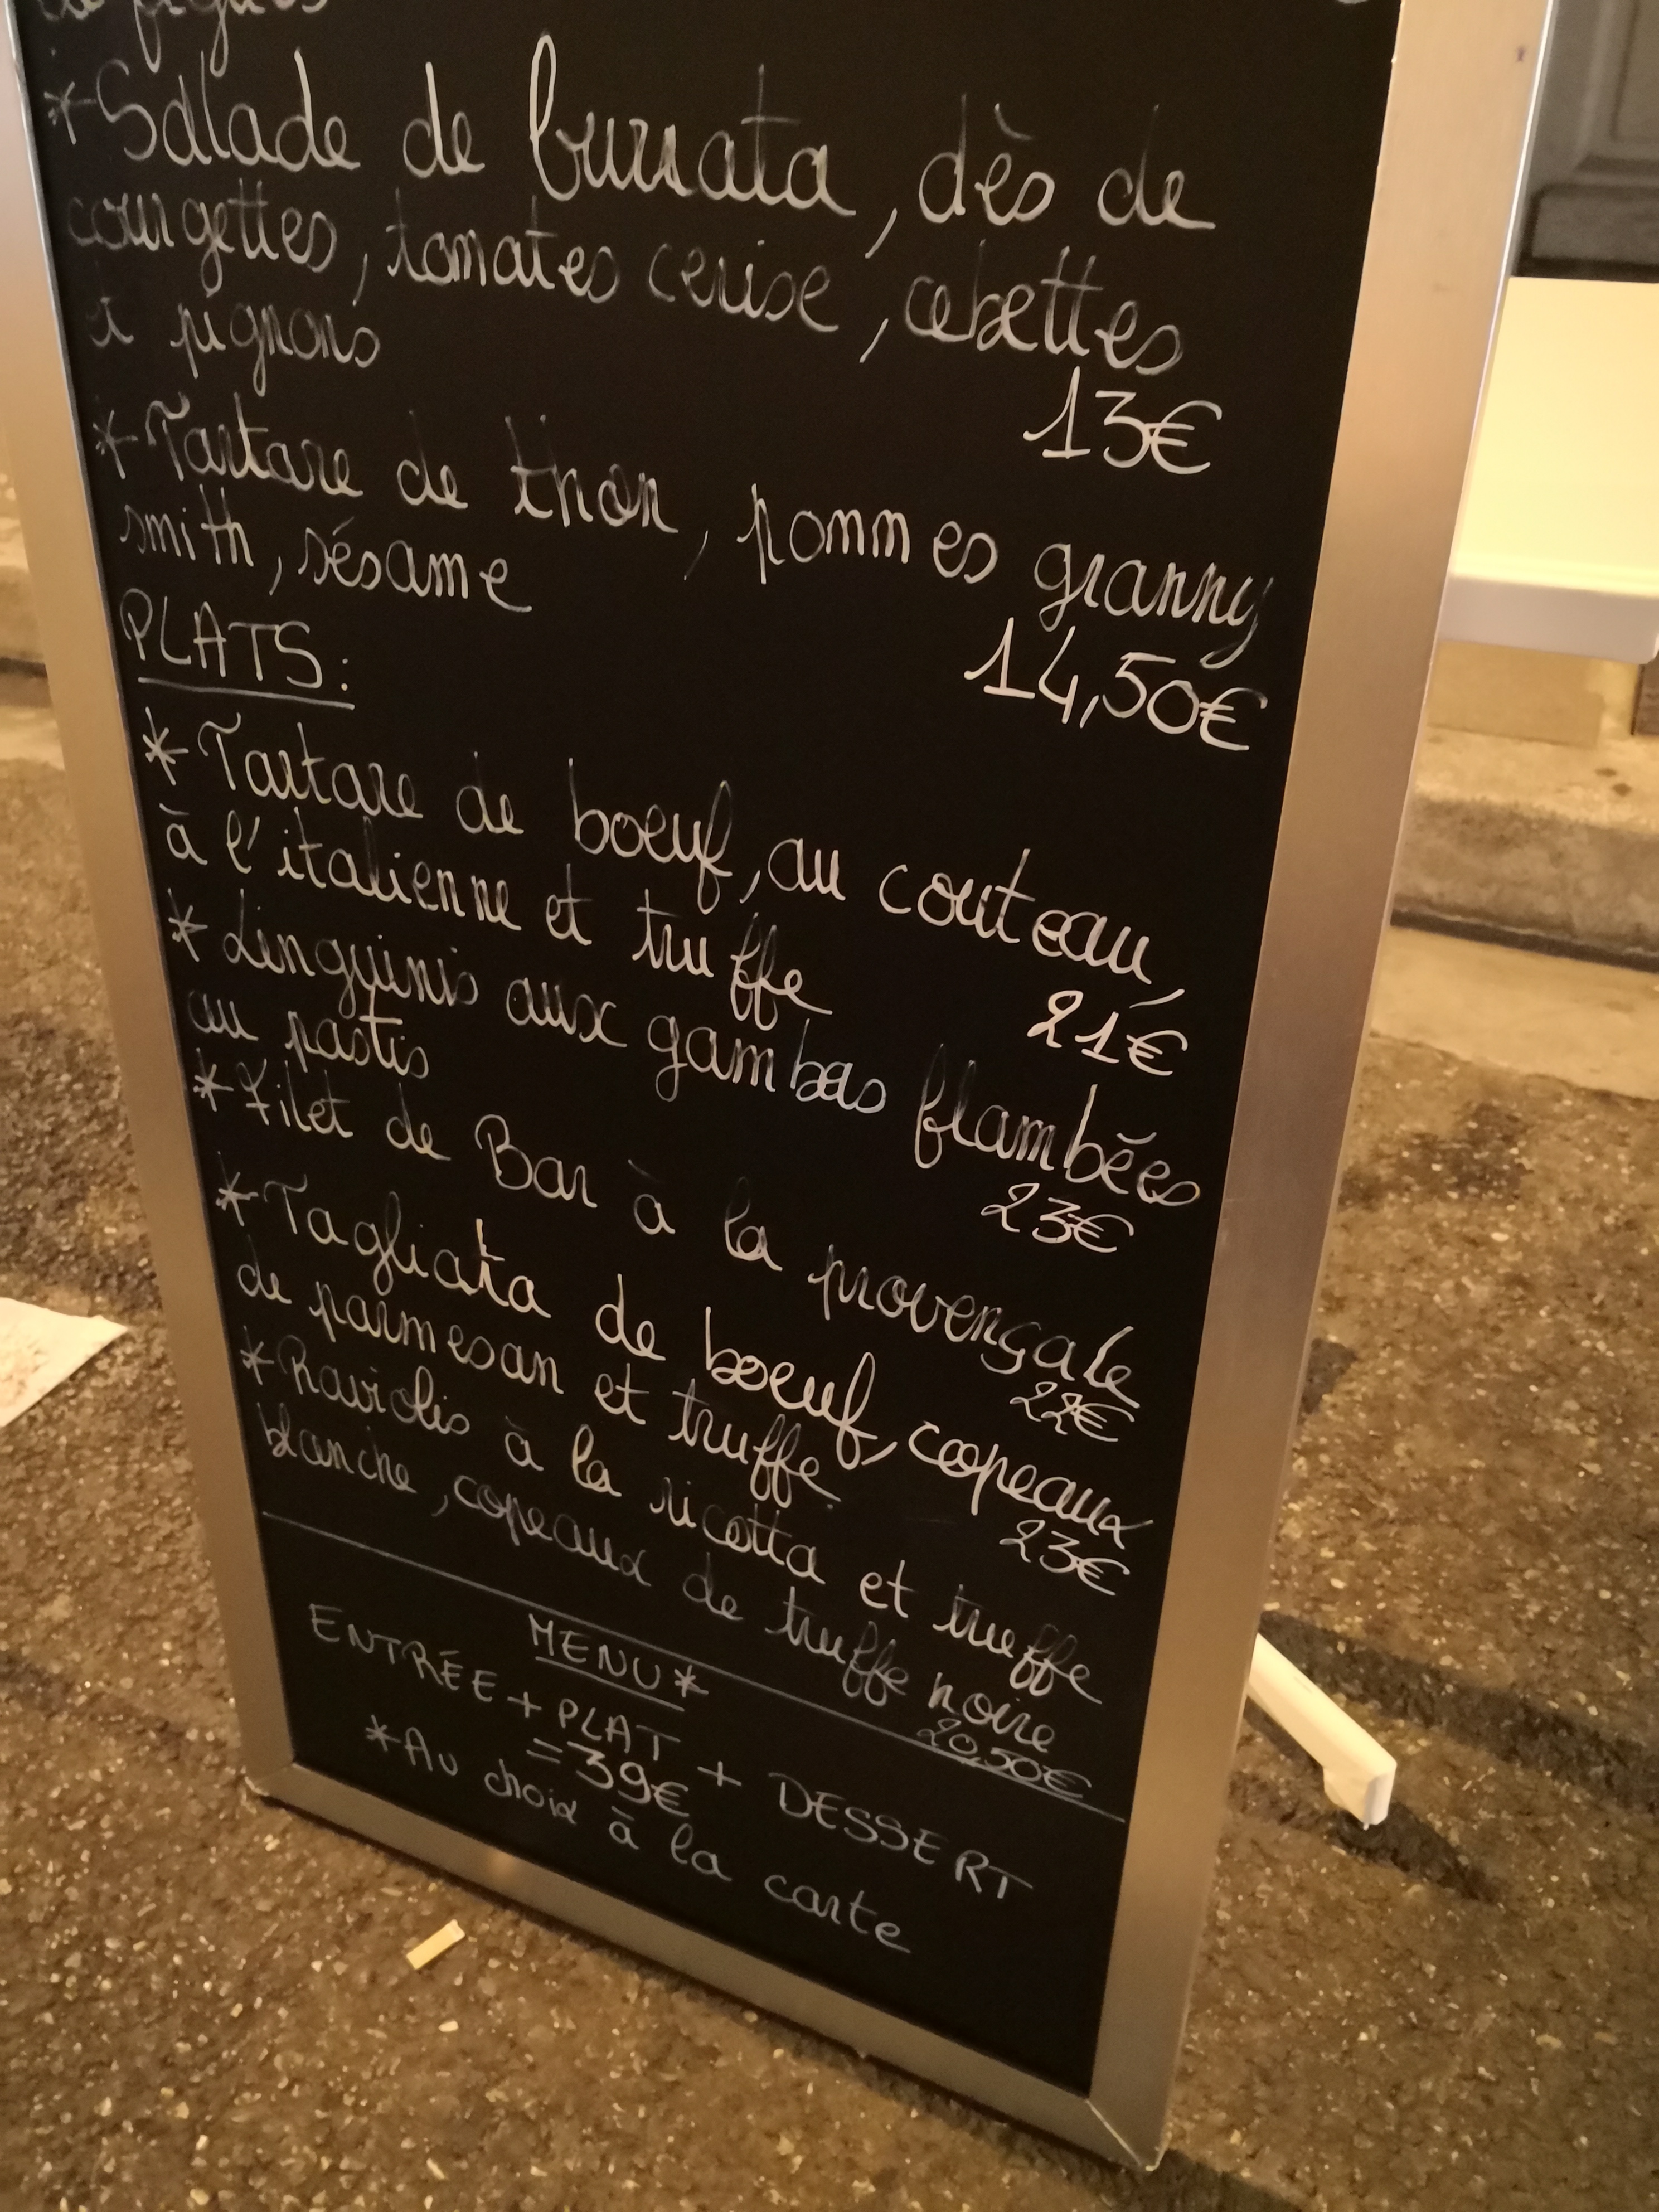 de figues
*Salade de burrata, dès de
courgettes, tomates cerise, cebettes
et pignons
13€
*Tartare de thon, pommes granny
smith, sésame
14,50€
PLATS:
*Tartare de boeuf, au couteau,
à l'italienne et truffe
21€
*Linguinis aux gambas flambées
au pastis
23€
*Filet de Bar à la provençale
22€
*Tagliata de boeuf, copeaux
de parmesan et truffe.
23€
*Raviolis à la ricotta et truffe
blanche, copeaux de truffe noire
20,50€
MENU*
ENTRÉE + PLAT + DESSERT
=39€
*Au choix à la carte